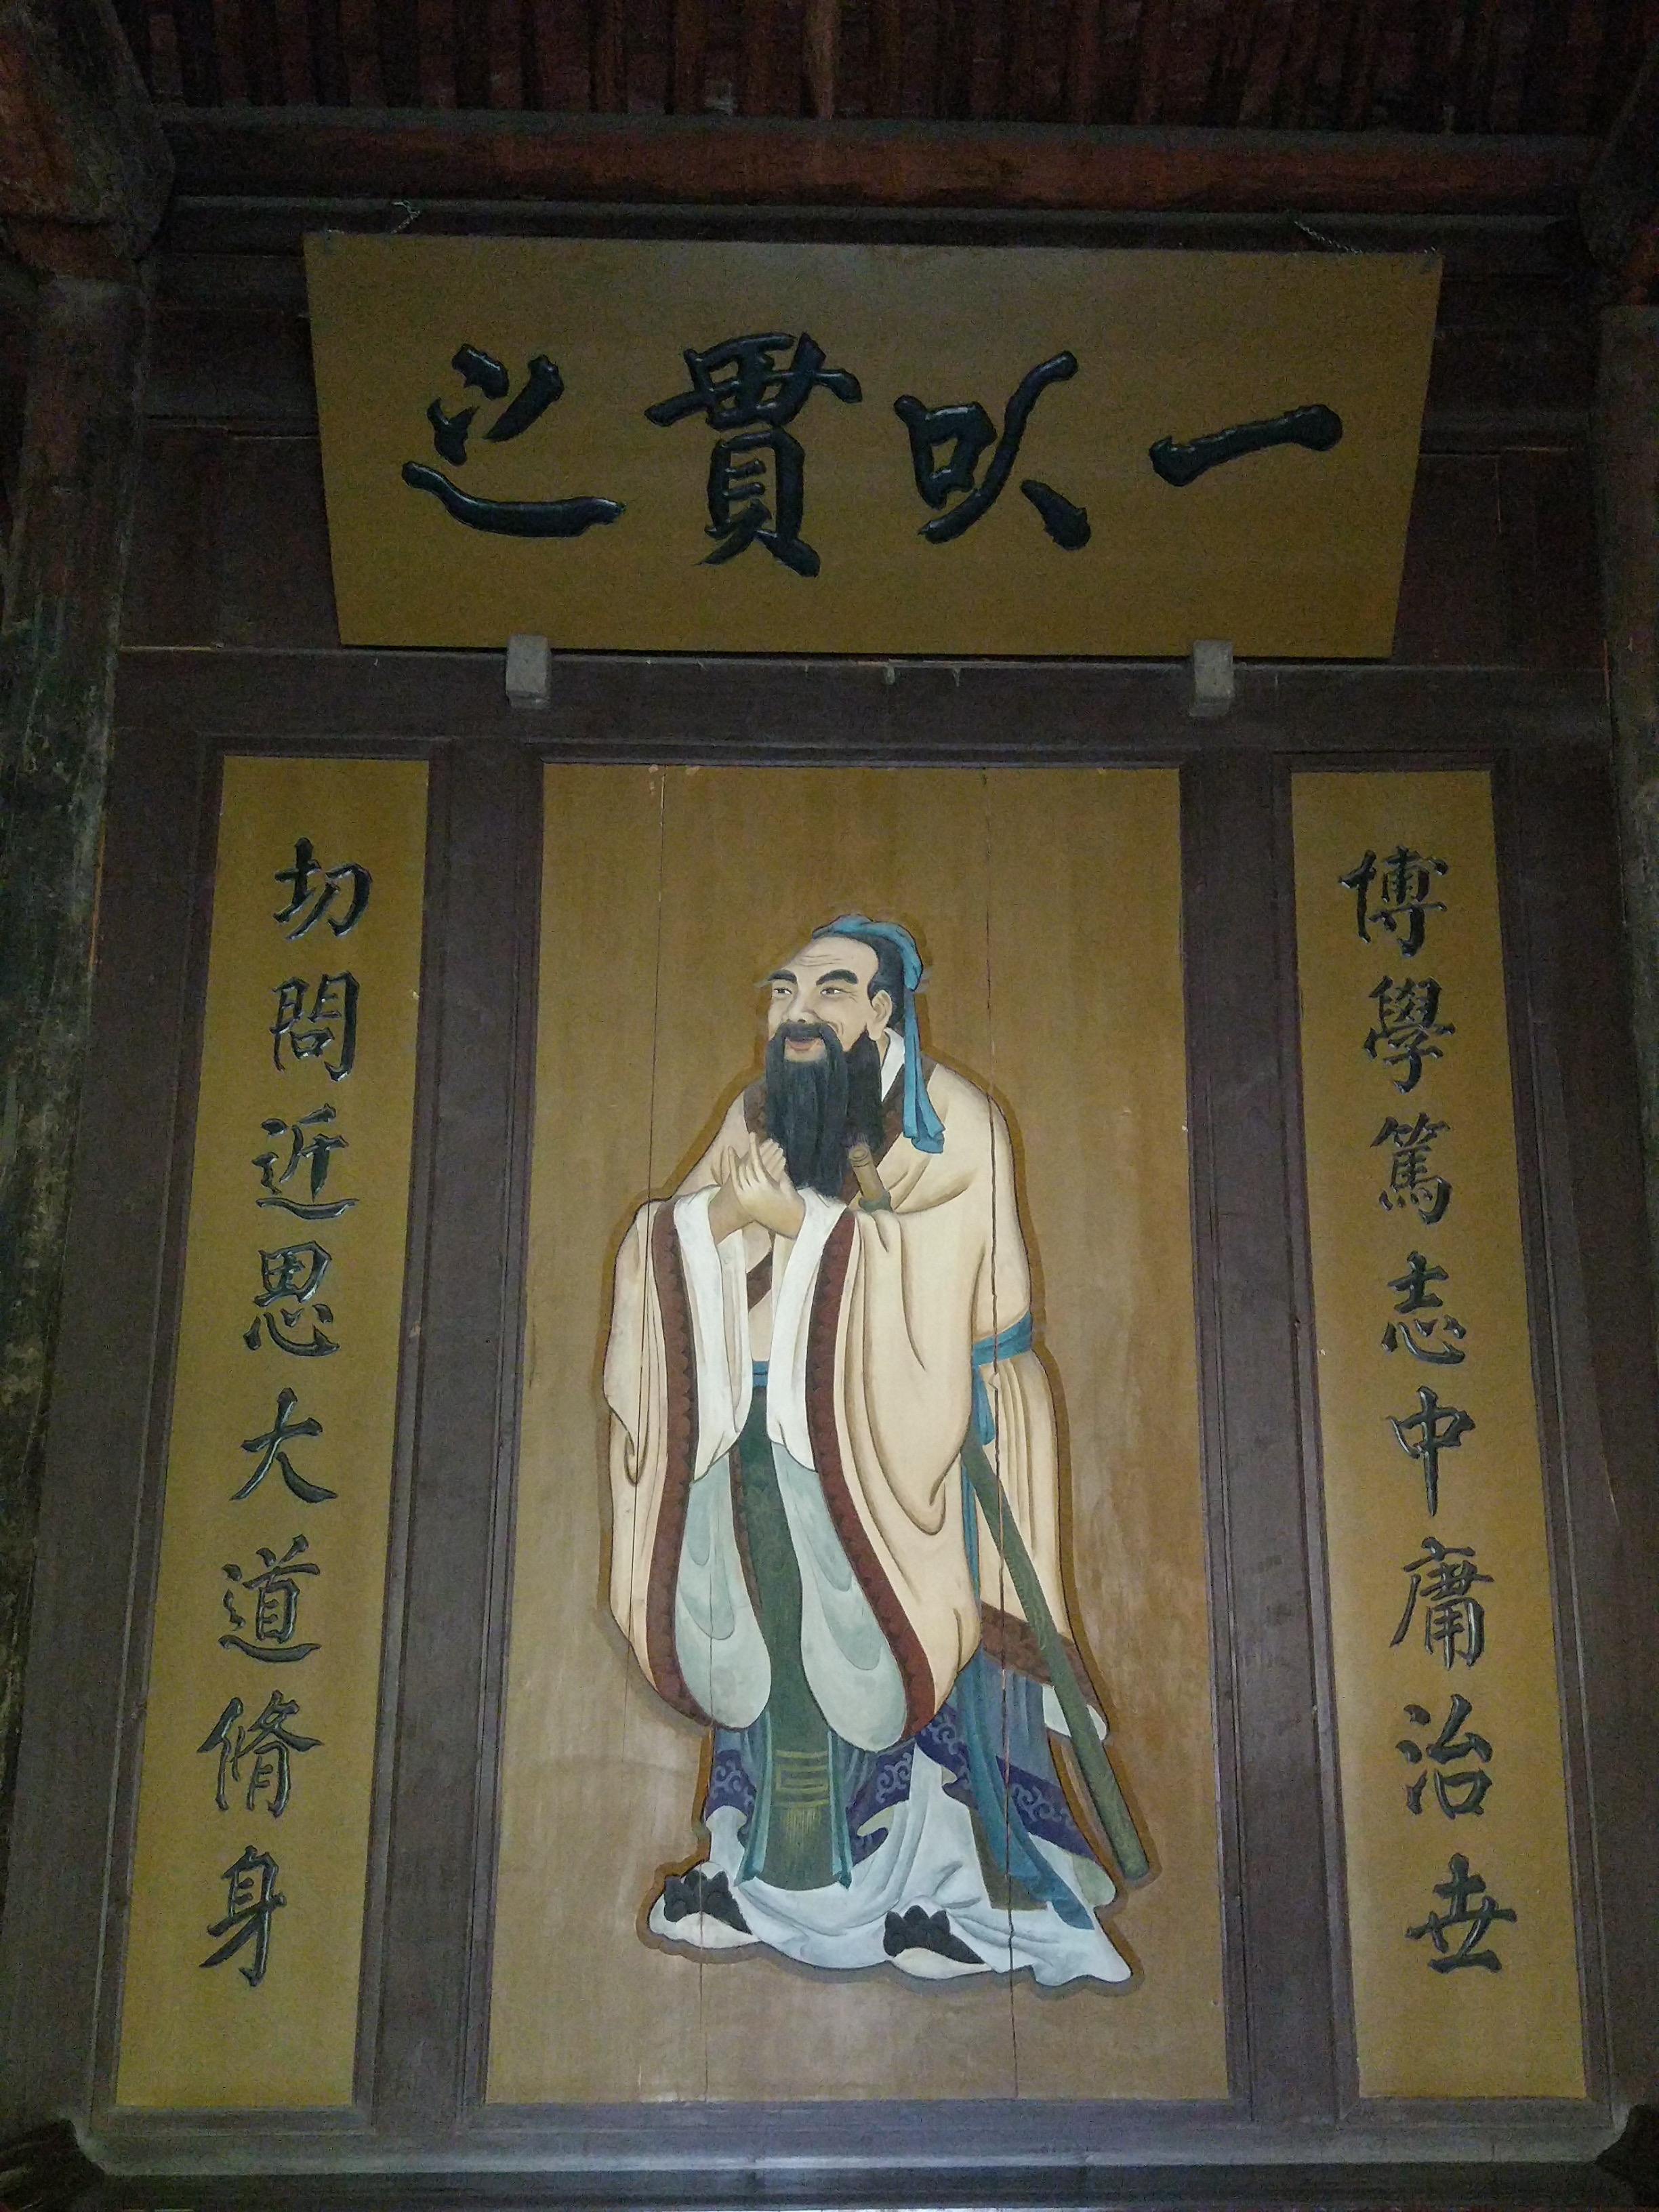 一以貫之
博學篤志中庸治世
切問近思大道脩身